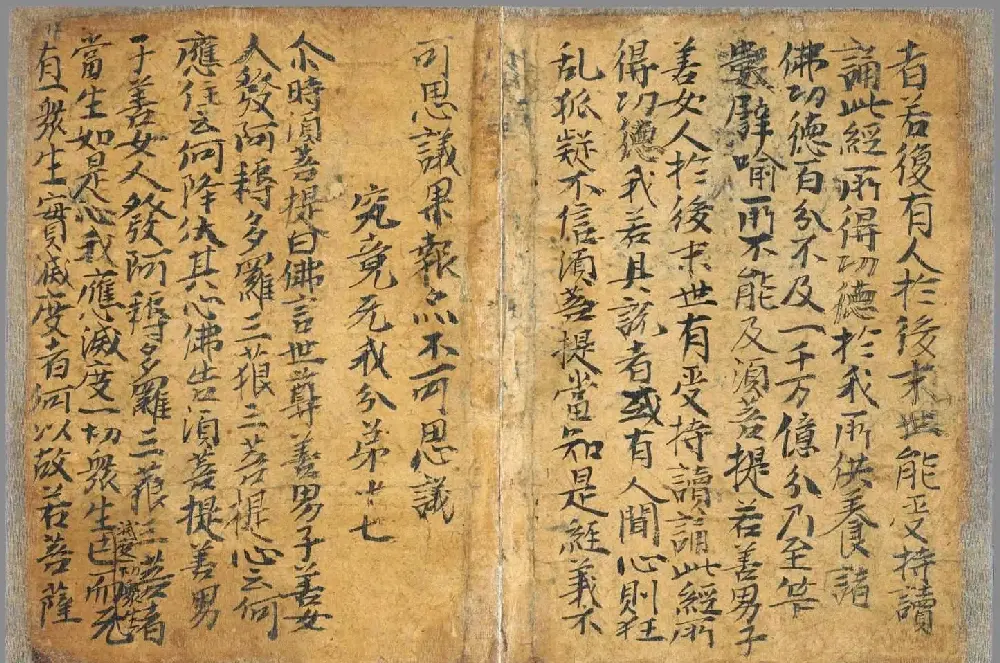 者若復有人於後末世能受持讀
誦此經所得功德於我所供養諸
佛功德百分不及一千万億分乃至筭
數譬喻所不能及須菩提若善男子
善女人於後末世有受持讀誦此經所
得功德我若具說者或有人聞心則狂
乱狐疑不信須菩提當知是經義不
可思議果報亦不可思議
究竟无我分弟十七
尒時須菩提白佛言世尊善男子善女
人發阿耨多羅三藐三菩提心云何
應住云何降伏其心佛告須菩提善男
子善女人發阿耨多羅三藐三菩者
滅度一切衆生
當生如是心我應滅度一切衆生已而无
有一衆生實滅度者何以故若菩薩